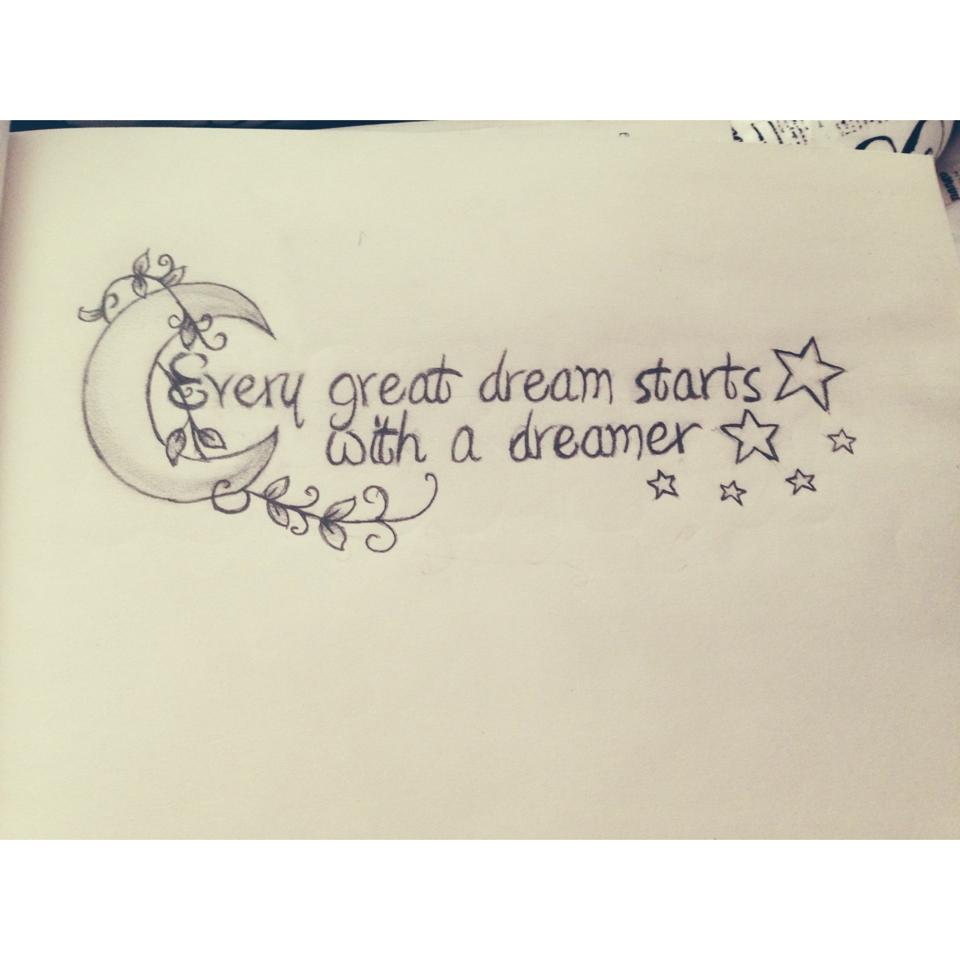 Every great dream starts
with a dreamer